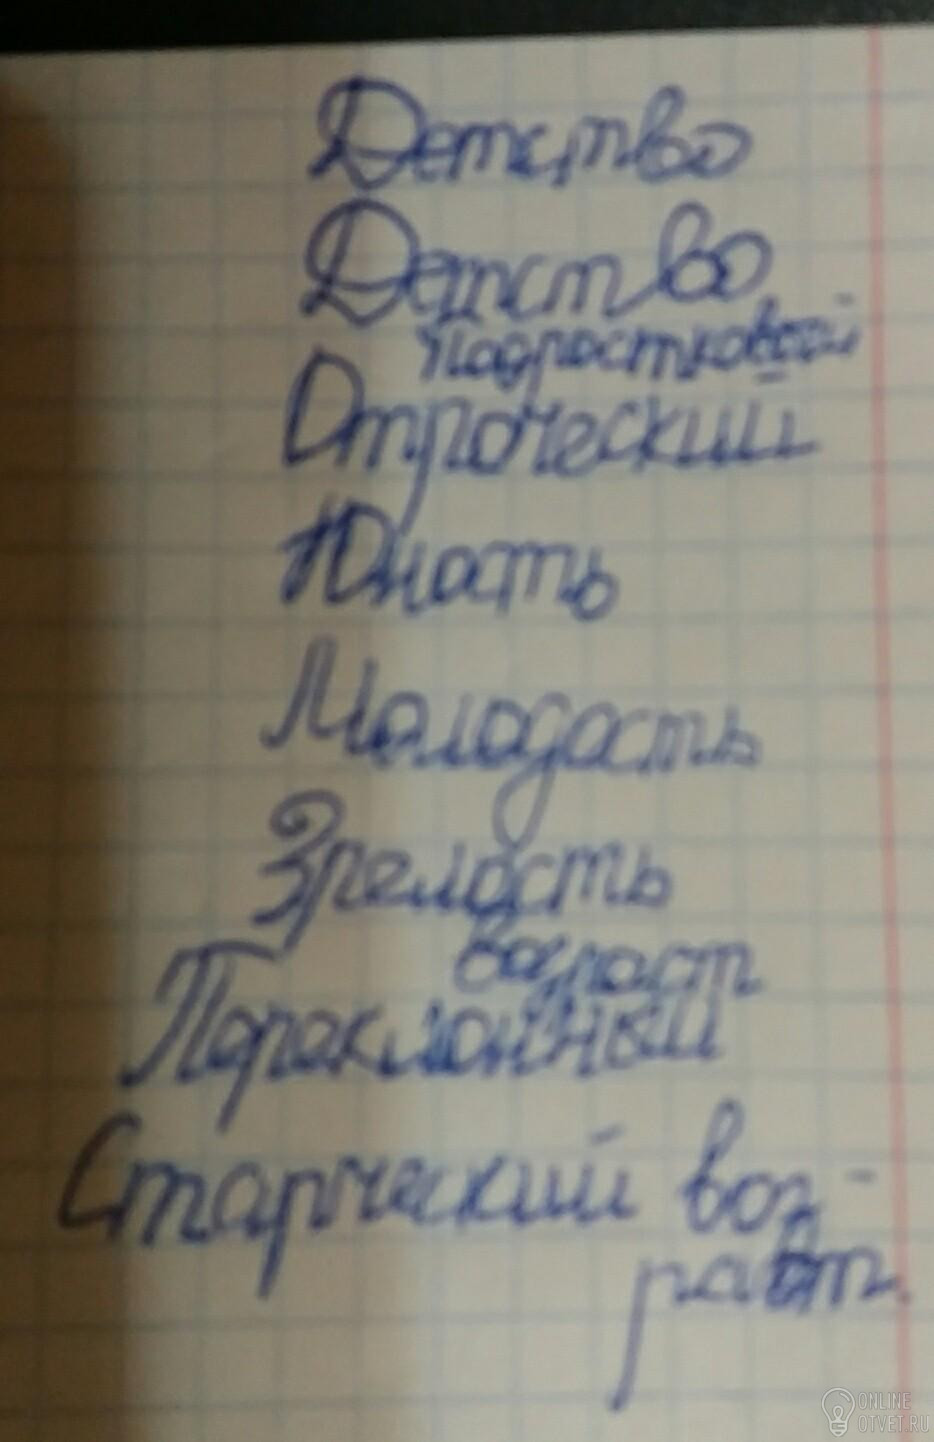 Детство
Детство
подростковой
Отроческий
Юность
Молодасть
Зрелость
возраст
Пораклонный
Старческий воз-
раст.
ONLINE
OTVET.RU